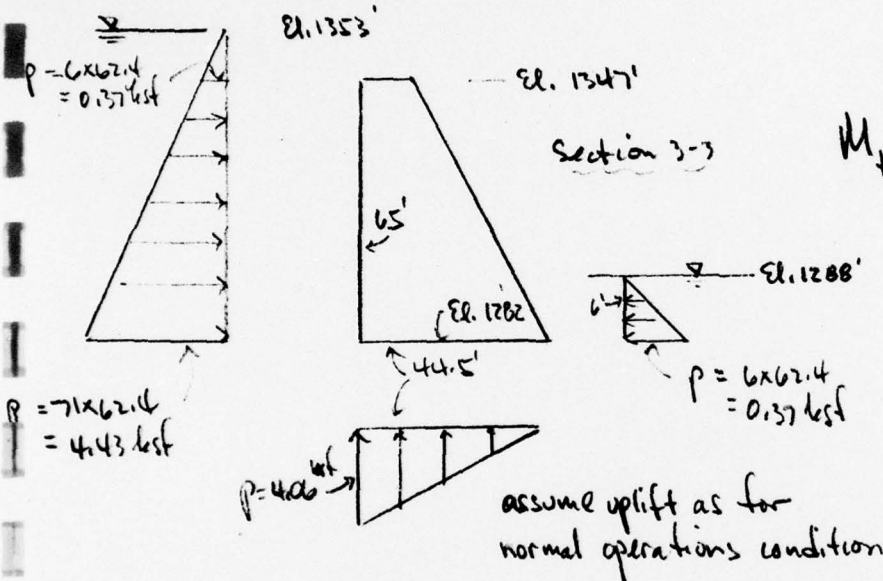 El. 1353'
p = 6x62.4
= 0.37 ksf
El. 1347'
Section 3-3
M
65'
El. 1288'
6'
El. 1282'
44.5'
p = 6x62.4
= 0.37 ksf
p = 71x62.4
= 4.43 ksf
p = 4.06 ksf
assume uplift as for
normal operations condition